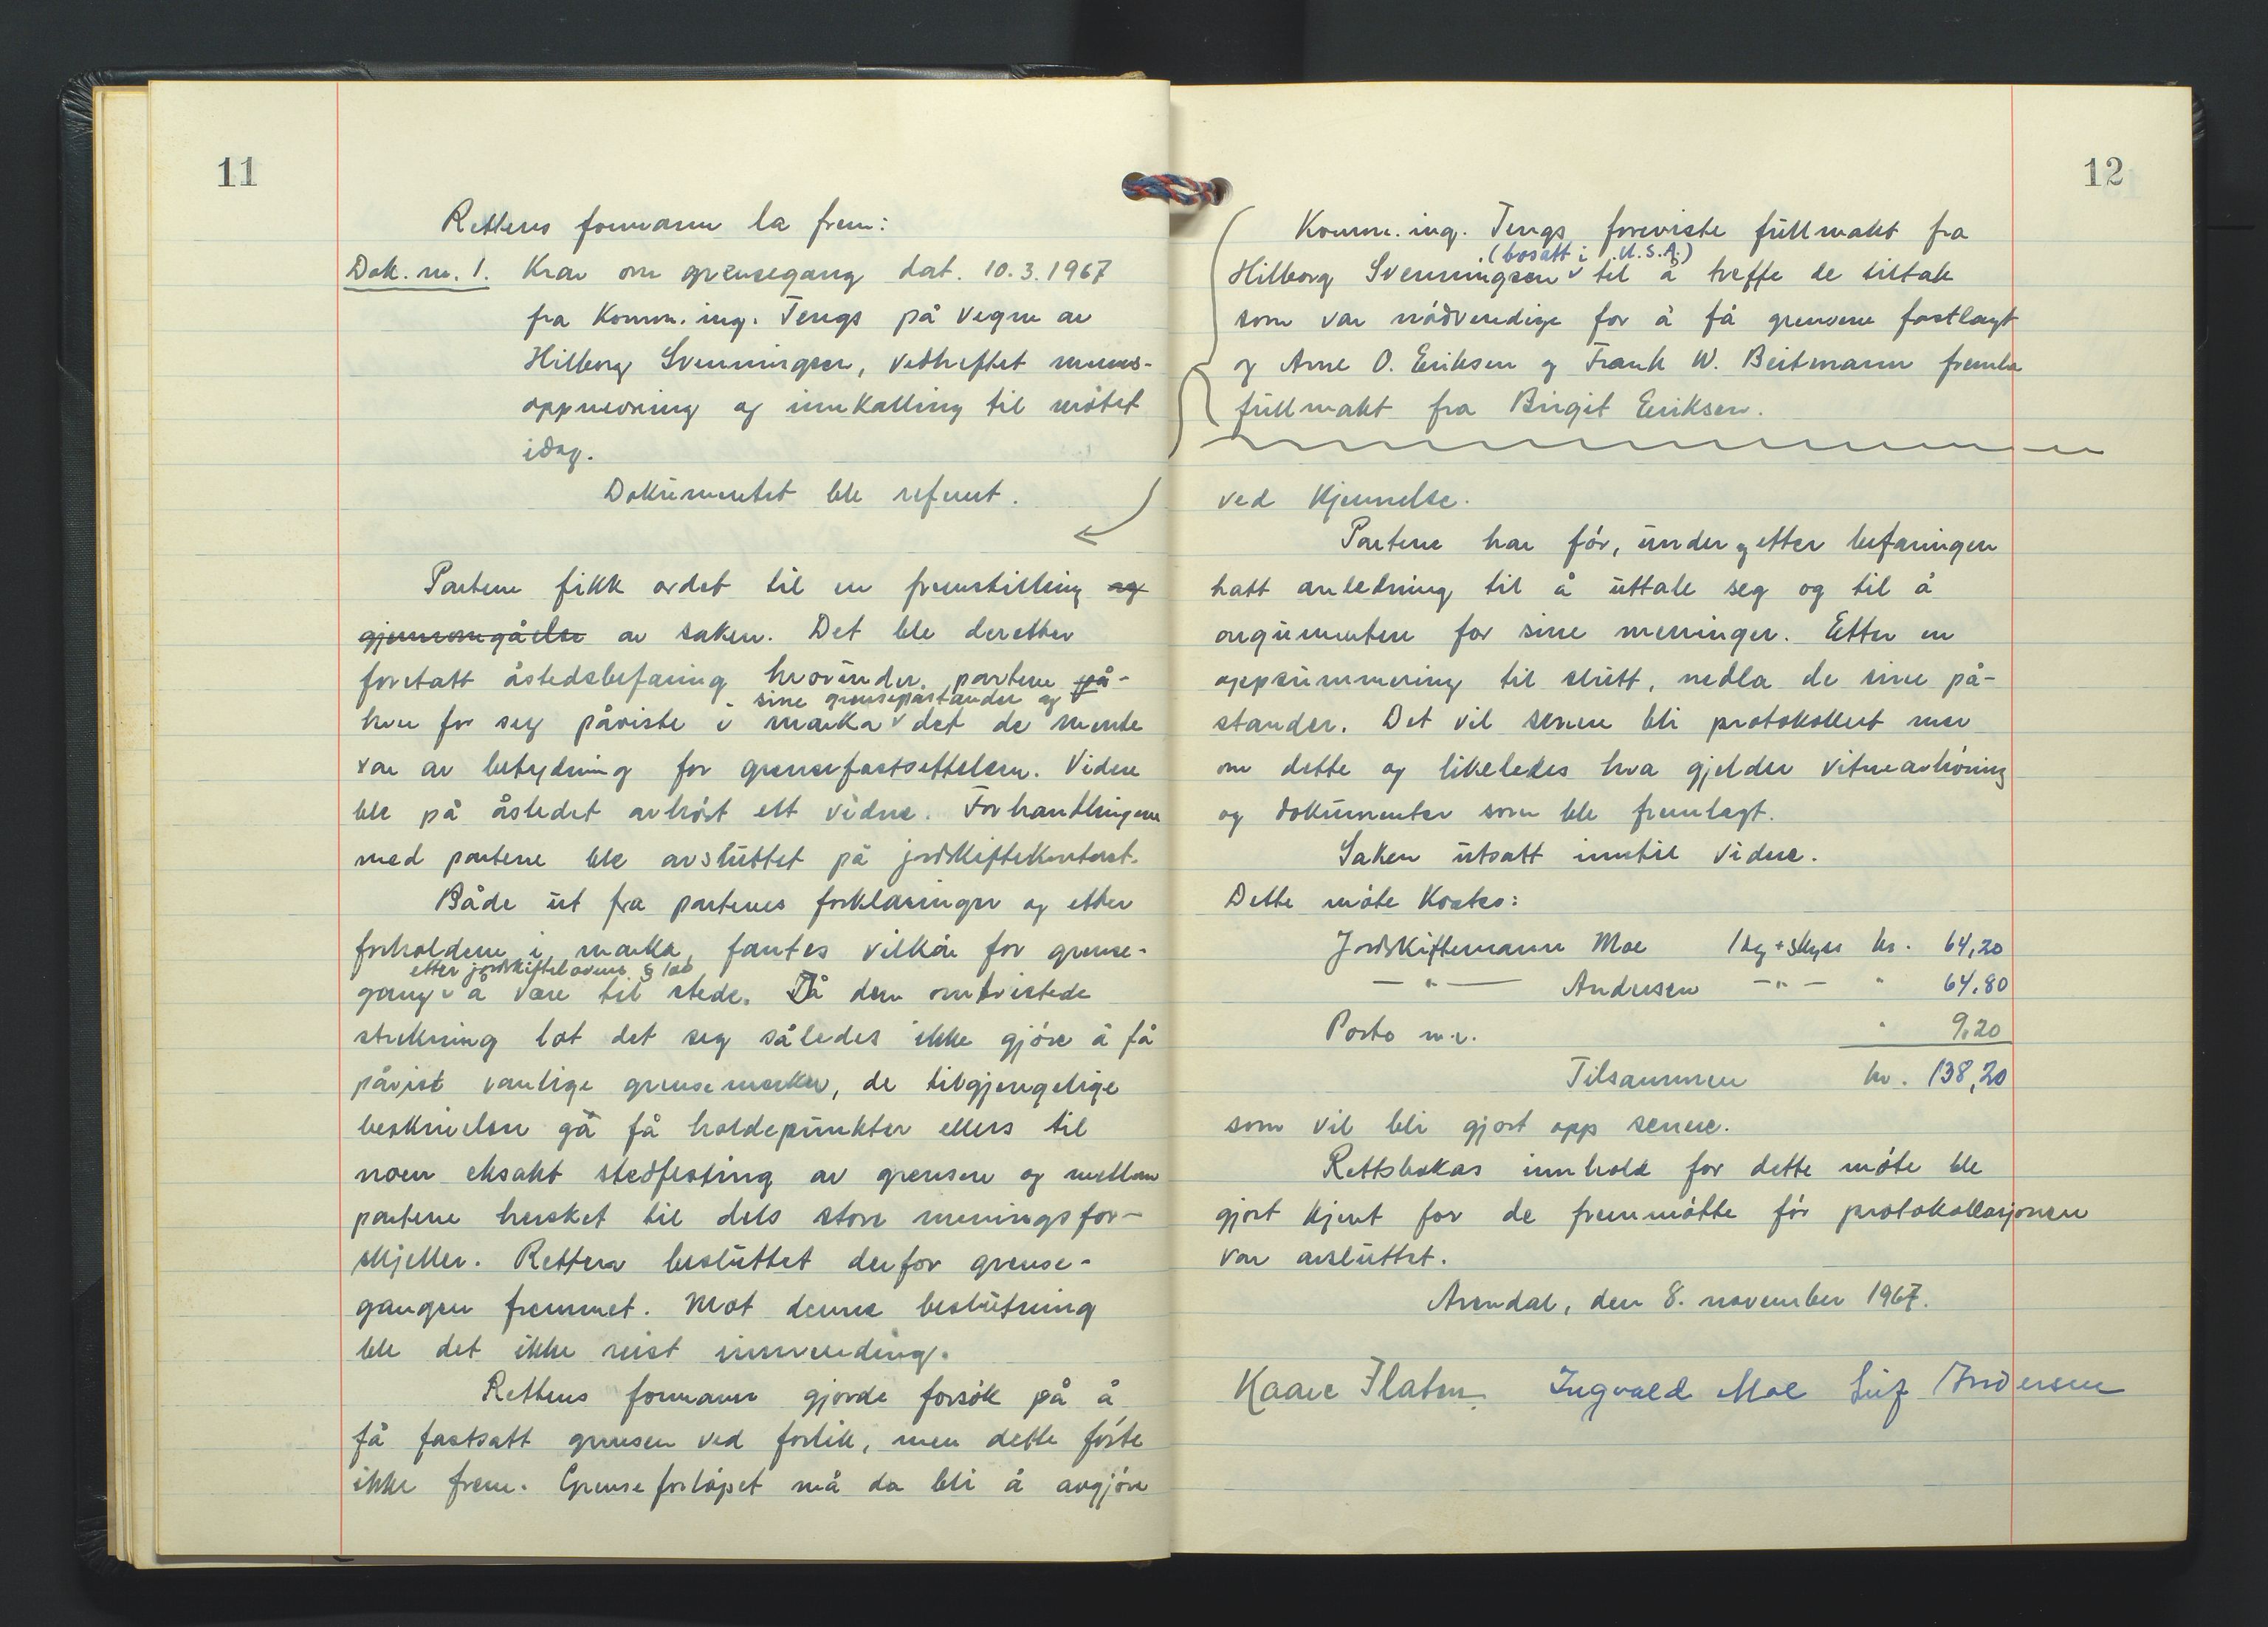 11
Rettens formann la frem:
Dok. nr. 1. Krav om grensegang dat. 10.3.1967
fra Komm. ing. Tengs på vegne av
Hilborg Svenningsen, vedheftet menns-
oppnevning og innkalling til møtet
idag.
Dokumentet ble referert.
Partene fikk ordet til en fremstilling og
gjennomgåelse av saken. Det ble deretter
foretatt åstedsbefaring hvorunder partene på-
sine grensepåstander og
hver for seg påviste i marka det de mente
var av betydning for grensefastsettelsen. Videre
ble på åstedet avhørt ett vidne. Forhandlingene
med partene ble avsluttet på jordskiftekontoret.
Både ut fra partenes forklaringer og etter
forholdene i marka, fantes vilkår for grense-
etter jordskiftelovens § 1ab
gang å være til stede. På den omtvistede
strekning lot det seg således ikke gjøre å få
påvist vanlige grensemerker, de tilgjengelige
beskrivelser gå få holdepunkter ellers til
noen eksakt stedfesting av grensene og mellom
partene hersket til dels store meningsfor-
skjeller. Retten besluttet derfor grense-
gangen fremmet. Mot denne beslutning
ble det ikke reist innvending.
Rettens formann gjorde forsøk på å
få fastsatt grensen ved forlik, men dette førte
ikke frem. Grenseforløpet må da bli å avgjøre
12
Komm. ing. Tengs foreviste fullmakt fra
(bosatt i U.S.A.)
Hilborg Svenningsen til å treffe de tiltak
som var nødvendige for å få grensene fastlagt
og Arne O. Eriksen og Frank W. Beitmann fremla
fullmakt fra Birgit Eriksen.
ved kjennelse.
Partene har før, under og etter befaringen
hatt anledning til å uttale seg og til å
argumentere for sine meninger. Etter en
oppsummering til slutt, nedla de sine på-
stander. Det vil senere bli protokollert mer
om dette og likeledes hva gjelder vitneavhøring
og dokumenter som ble fremlagt.
Saken utsatt inntil videre.
Dette møte kostes:
Jordskiftemann Moe 1 dg + skyss kr. 64,20
— " — Andersen — " — " 64.80
Porto m.v. " 9.20
Tilsammen kr. 138,20
som vil bli gjort opp senere.
Rettsbokas innhold for dette møte ble
gjort kjent for de fremmøtte før protokollasjonen
var avsluttet.
Arendal, den 8. november 1967.
Kaare Flaten Ingvald Moe Leif Andersen